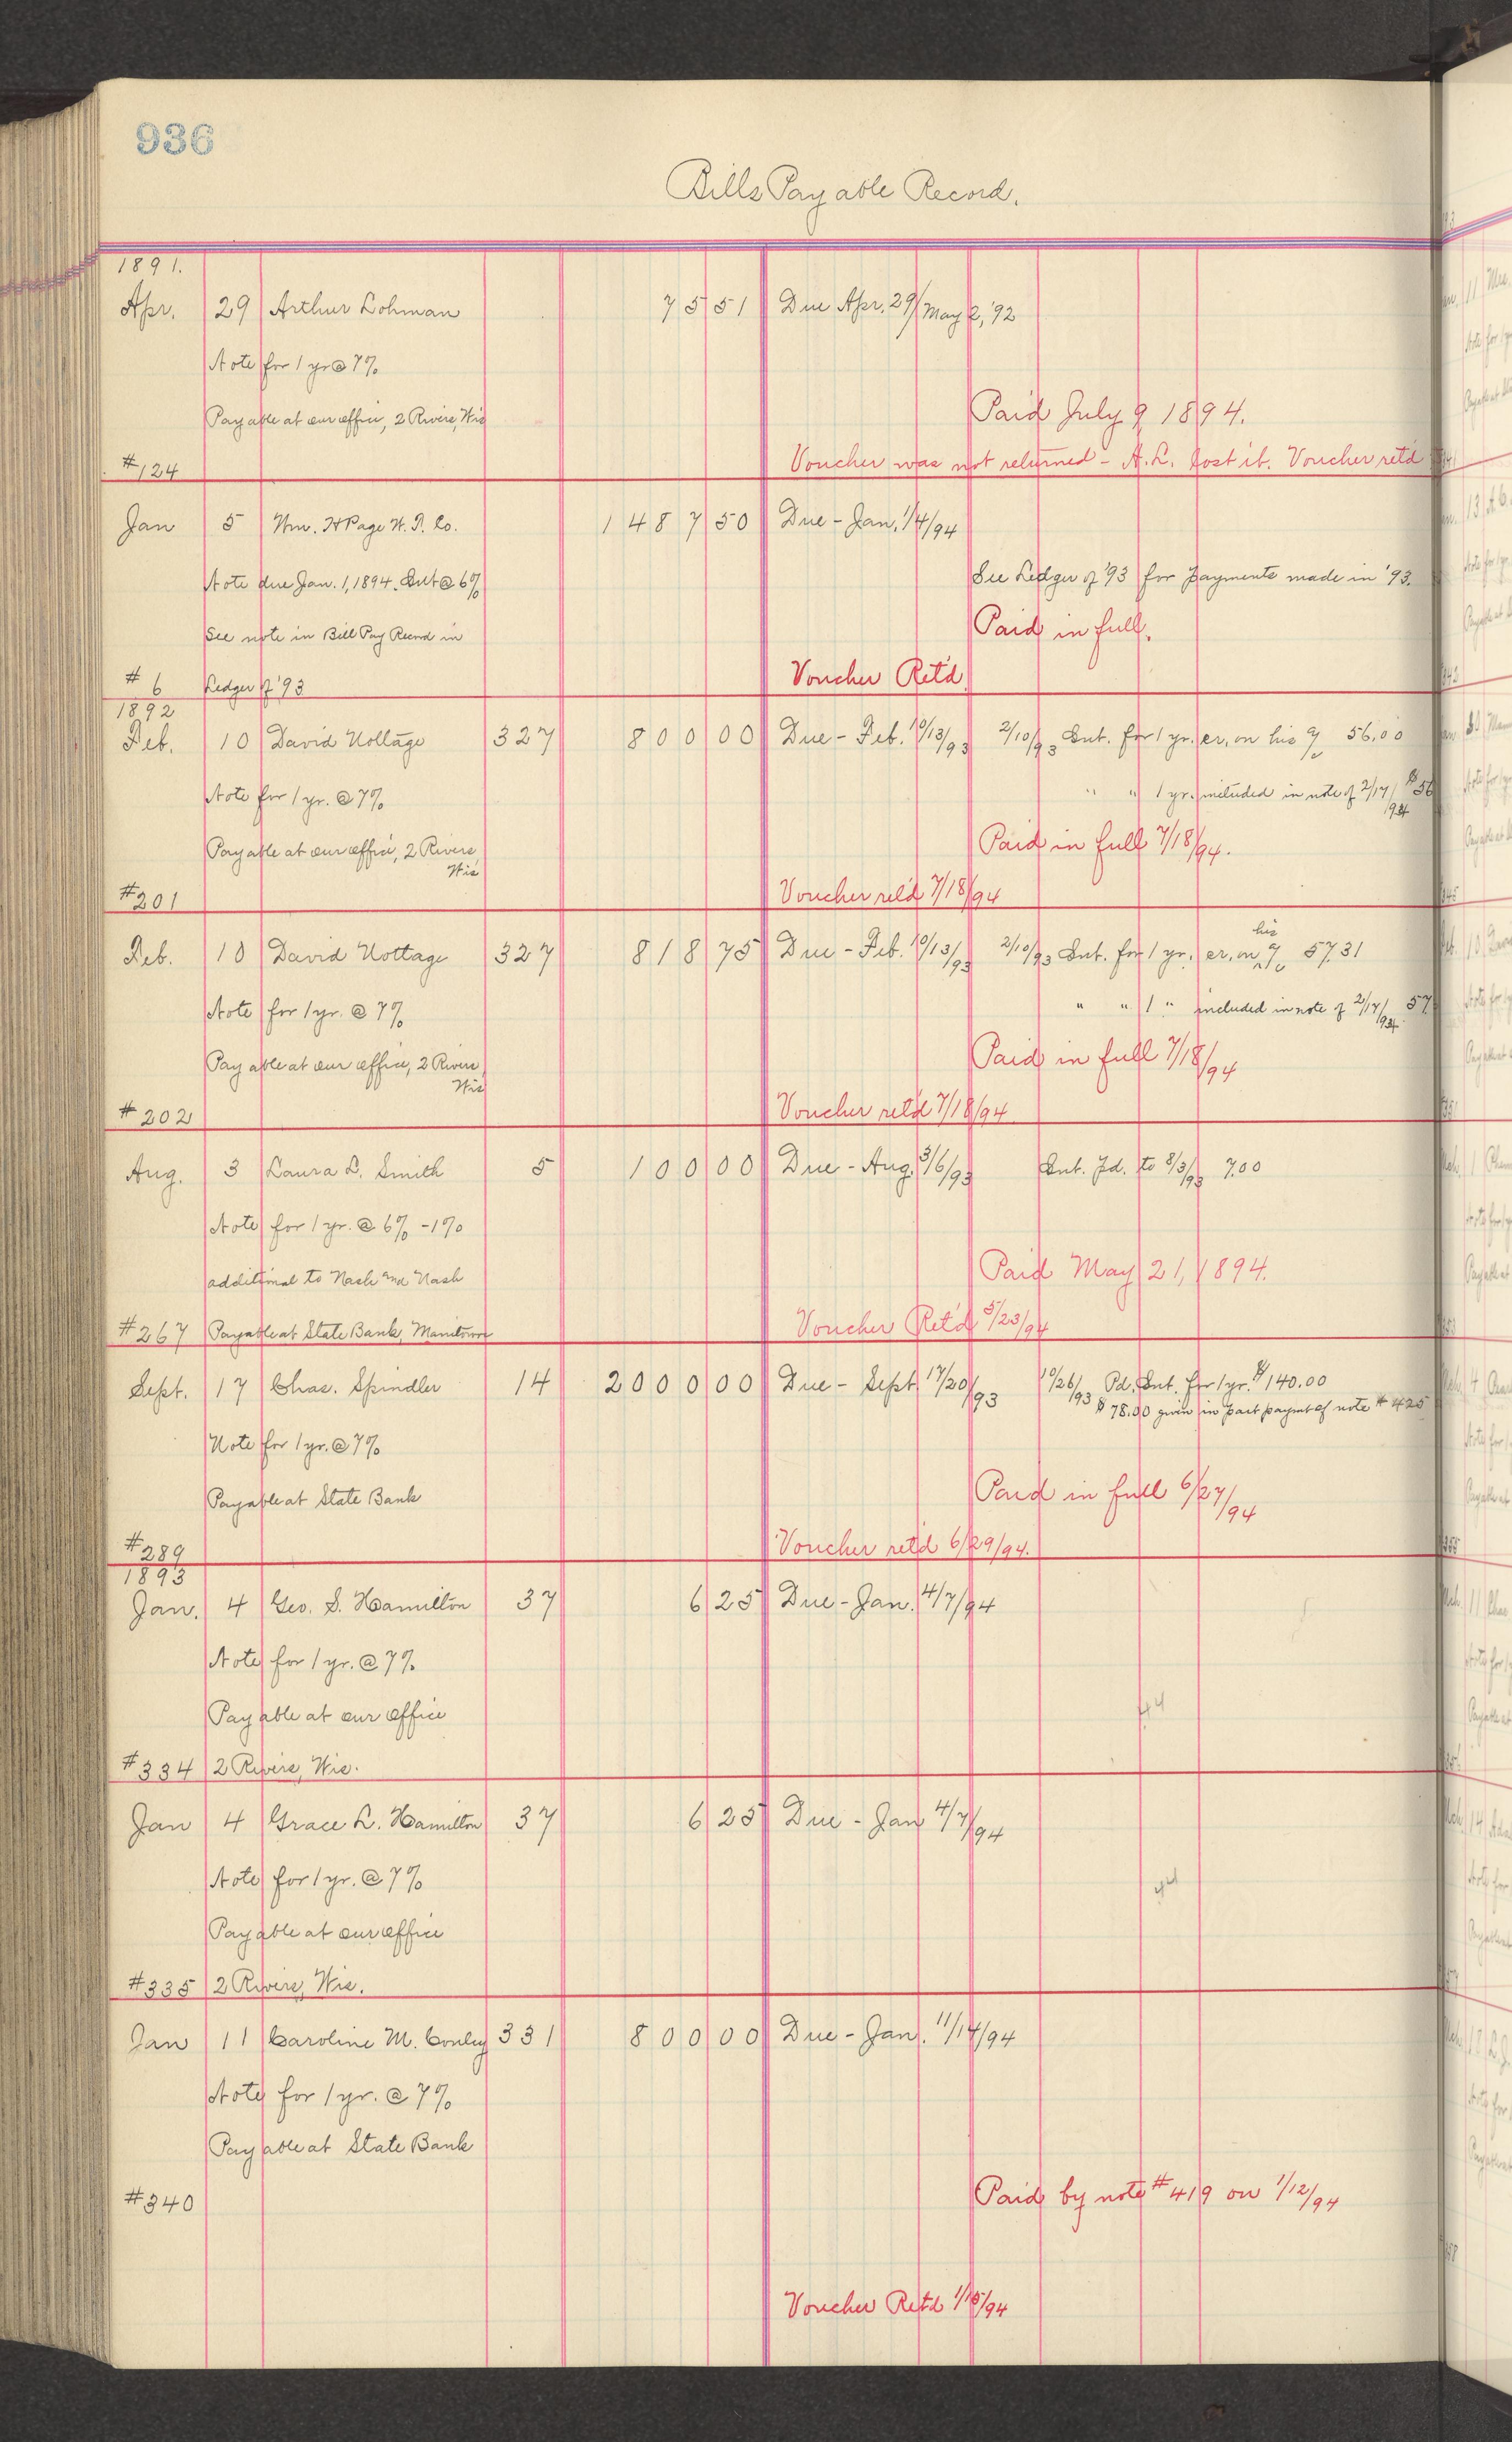 936
Bills Payable Record.
1891.
Apr. 29 Arthur Lohman 75 51 Due Apr. 29/May 2, '92
Note for 1 yr @ 7%
Payable at our office, 2 Rivers, Wis Paid July 9 1894.
#124 Voucher was not returned - A.L. lost it. Voucher ret'd
Jan 5 Wm. H Page W. T. Co. 1487 50 Due - Jan. 1/4/94
Note due Jan. 1, 1894. Int @ 6% See Ledger of '93 for payments made in '93.
See note in Bill Pay Record in Paid in full.
#6 Ledger of '93 Voucher Ret'd
1892
Feb. 10 David Nottage 327 800 00 Due - Feb. 10/13/93 2/10/93 Int. for 1 yr. cr. on his a/c 56.00
Note for 1 yr. @ 7% " " 1 yr. included in note of 2/17/94 $56
Payable at our office, 2 Rivers Wis Paid in full 7/18/94.
#201 Voucher ret'd 7/18/94
Feb. 10 David Nottage 327 818 75 Due - Feb. 10/13/93 2/10/93 Int. for 1 yr. cr. on his a/c 57.31
Note for 1 yr. @ 7% " " 1 " included in note of 2/17/94 57.
Payable at our office, 2 Rivers Wis Paid in full 7/18/94
#202 Voucher ret'd 7/18/94
Aug. 3 Laura L. Smith 5 100 00 Due - Aug. 3/6/93 Int. Pd. to 8/3/93 7.00
Note for 1 yr. @ 6% - 1%
additional to Nash and Nash Paid May 21, 1894.
#267 Payable at State Bank, Manitowoc Voucher Ret'd 5/23/94
Sept. 17 Chas. Spindler 14 2000 00 Due - Sept 17/20/93 10/26/93 Pd. Int. for 1 yr. $140.00
$78.00 given in part paymt of note #425
Note for 1 yr. @ 7%
Payable at State Bank Paid in full 6/27/94
#289 Voucher ret'd 6/29/94.
1893
Jan. 4 Geo. S. Hamilton 37 6 25 Due - Jan. 4/7/94
Note for 1 yr. @ 7%
Payable at our office 44
#334 2 Rivers, Wis.
Jan 4 Grace L. Hamilton 37 6 25 Due - Jan 4/7/94
Note for 1 yr. @ 7% 44
Payable at our office
#335 2 Rivers, Wis.
Jan 11 Caroline M. Conley 331 800 00 Due - Jan. 11/14/94
Note for 1 yr. @ 7%
Payable at State Bank
#340 Paid by note #419 on 1/12/94
Voucher Ret'd 1/15/94